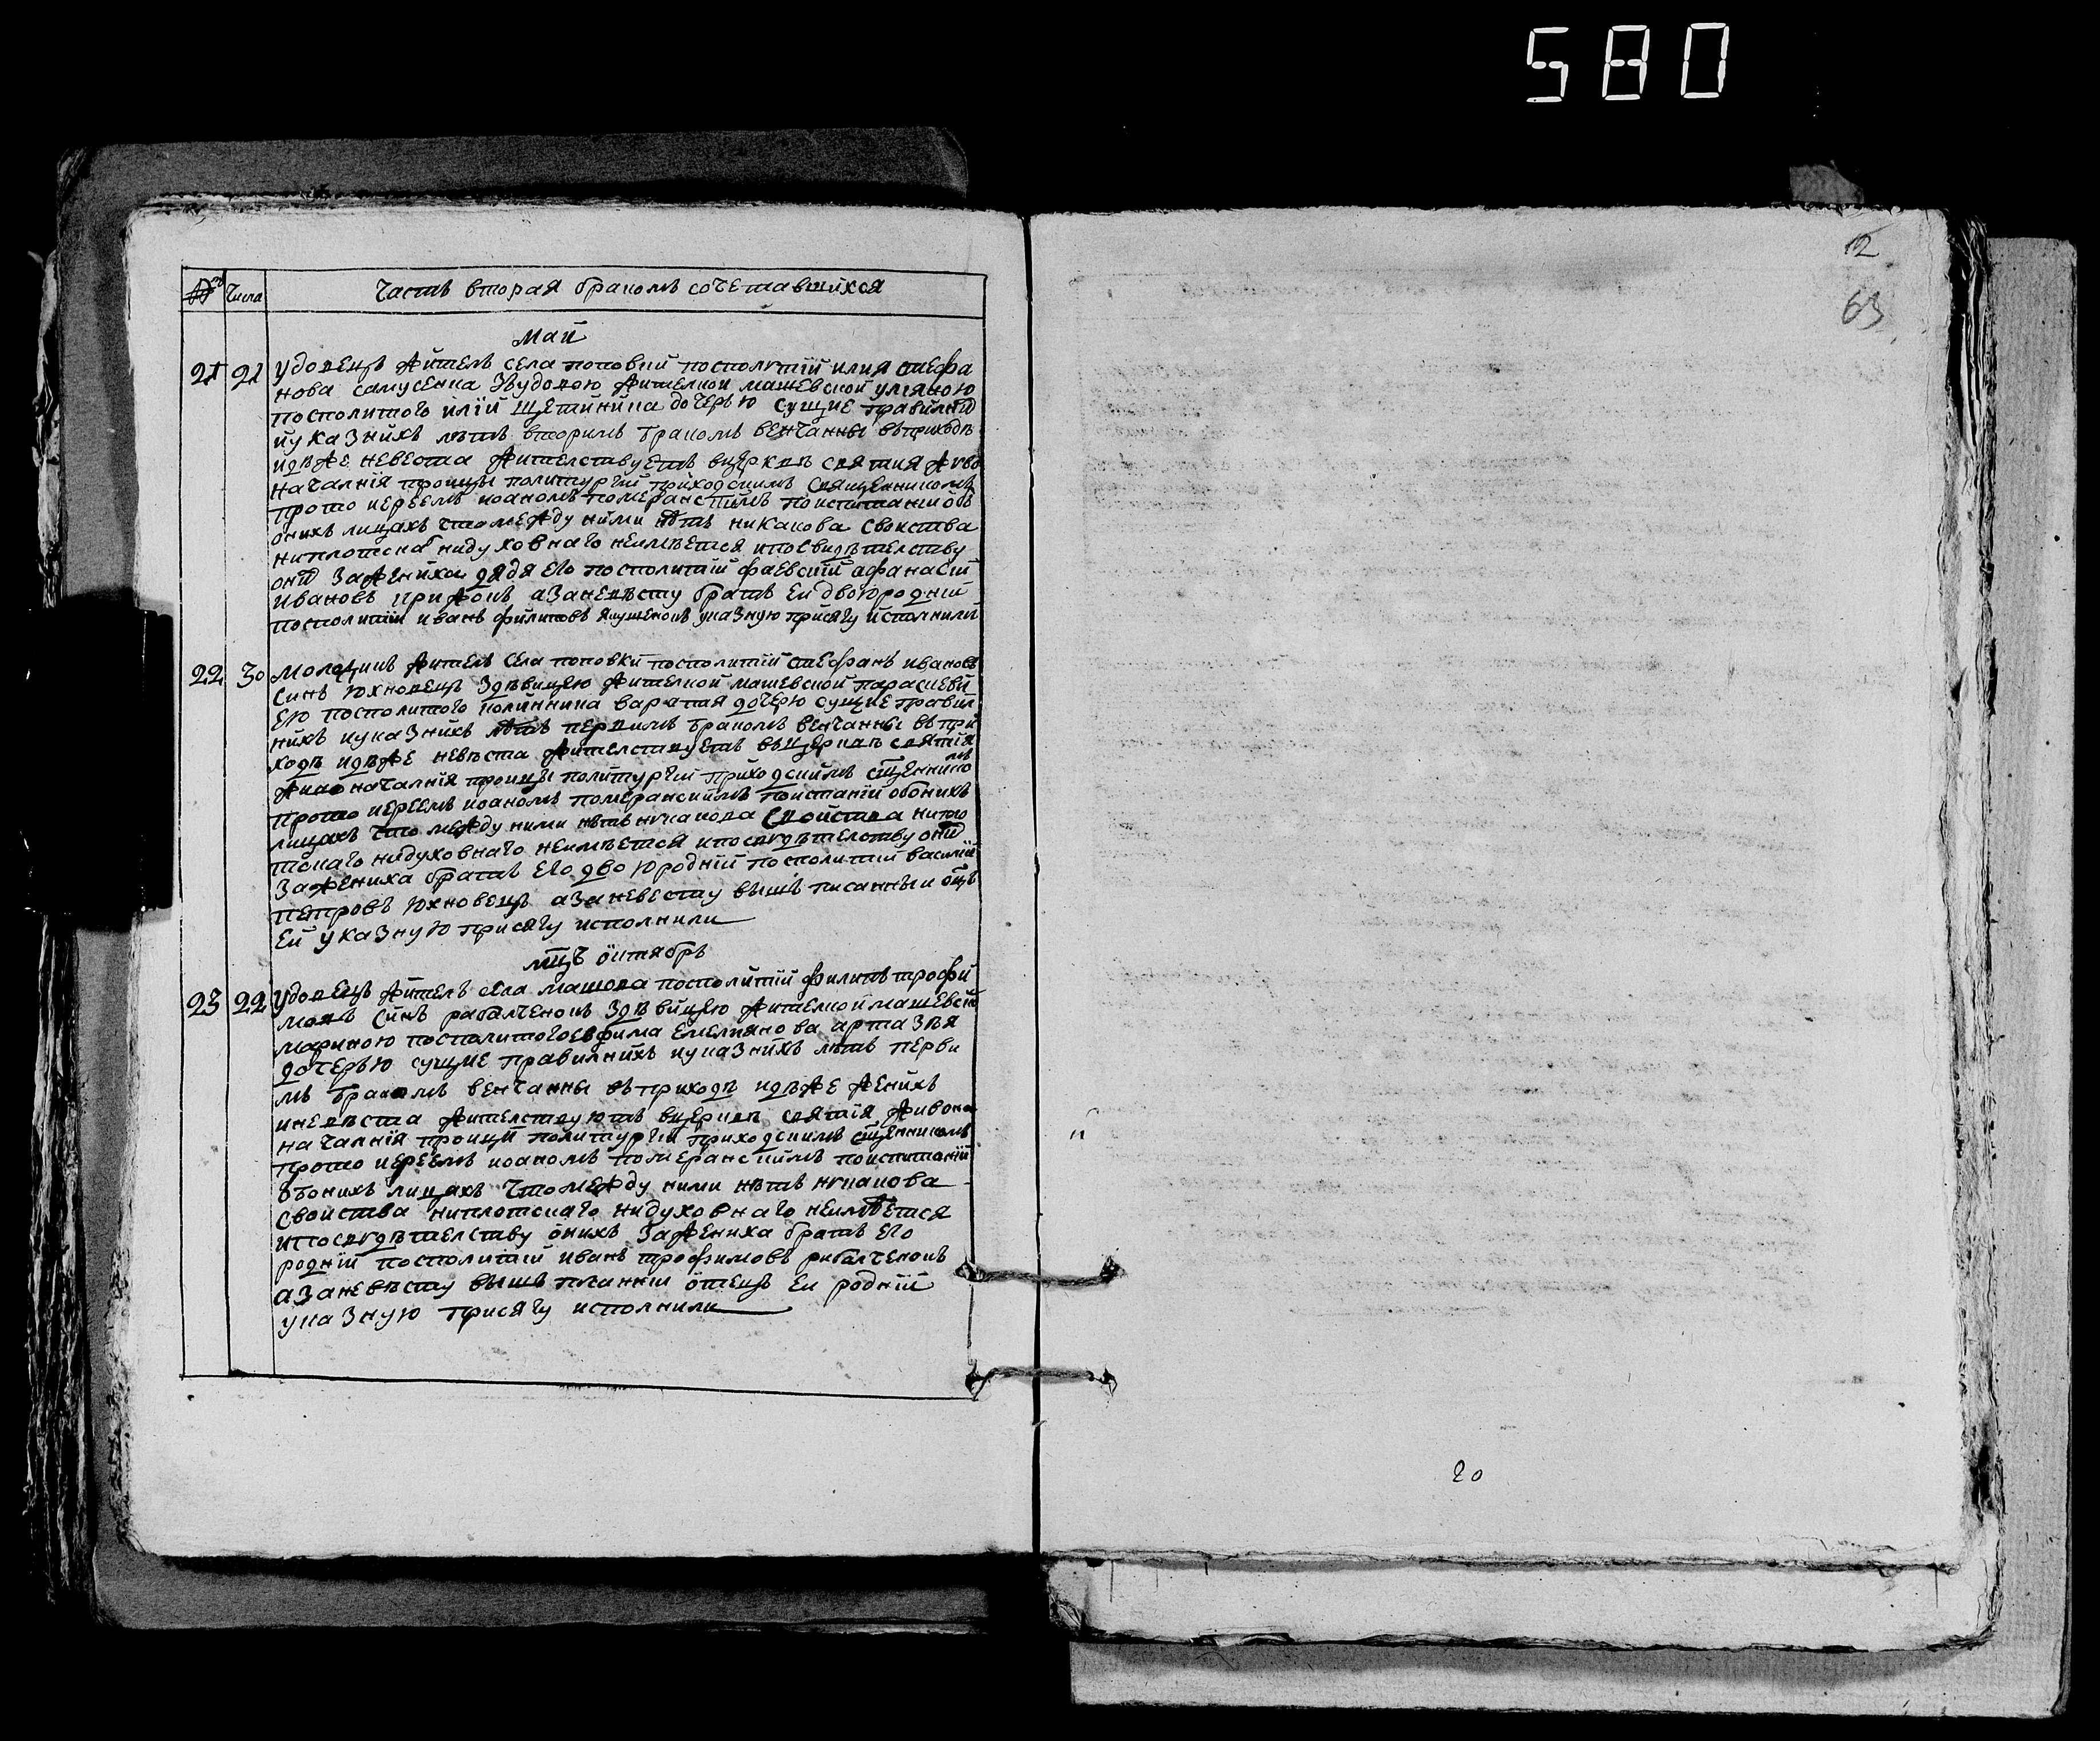 580
12
63
№ Числа Часть вторая бракомъ сочетавшихся
Май
21 21 удовецъ житель села поповки посполитій илия стефа
нова самусенка звудовою жителкой машевской уляною
посполитого иліи щетинника дочерью сущие правилнѣ
и указнихъ лѣтъ вторимъ бракомъ венчанны въ приходѣ
идѣже невеста жителствуетъ вцерквѣ святия живо
началнія троицы политургіи приходскимъ священникомъ
прото иереемъ иоаномъ померанскимъ поиспитаніи объ
онихъ лицахъ что между ними нѣтъ никакова своиства
ниплотскаго нидуховнаго неимѣется ипосвидѣтелству
онихъ зажениха дядя его посполитій фаевскій афанасій
ивановъ азаневѣсту братъ еи двоюродній
посполитій иванъ филиповъ указную присягу исполнили
22 30 молодикъ житель села поповки посполитій стефанъ ивановъ
синъ юхновецъ здѣвицею жителкой машевской параскеви
ею посполитого дочерю сущие правил
нихъ иуказнихъ лѣтъ первимъ бракомъ венчанны въ при
ходѣ идѣже невѣста жителствуетъ въцерквѣ святія
живоначалнія троицы политургіи приходскимъ сщеннико
мъ
прото иереемъ иоаномъ померанскимъ поиспитаніи обонихъ
лицахъ что между ними нѣтъ никакова своиства нипло
тскаго нидуховнаго неимѣется ипосвидѣтелству онихъ
зажениха братъ его двоюродній посполитій василій
петровъ юхновецъ азаневесту вышѣ писанныи оцъ
еи указную присягу исполнили
мцъ октябръ
23 22 удовецъ житель села машова посполитій филипъ трофи
мовъ синъ рабалченокъ здѣвицею жителкой машевской
мариною посполитогоефима емеляно ва
дочерью сущие правилнихъ иуказнихъ лѣтъ перви
мъ бракомъ венчанны въ приходѣ идѣже женихъ
иневѣста жителствуютъ вцерквѣ святія живона
началнія троици политургіи приходскимъ сщенникомъ
прото иереемъ иоаномъ померанскимъ поиспитаніи
обонихъ лицахъ что между ними нѣтъ никакова
своиства ниплотскаго нидуховнаго неимѣется
ипосвидѣтелству онихъ зажениха братъ его
родній посполитій иванъ трофимовъ рабалченокъ
азаневѣсту вышѣ псанніи отецъ еи родніи
указную присягу исполнили
20